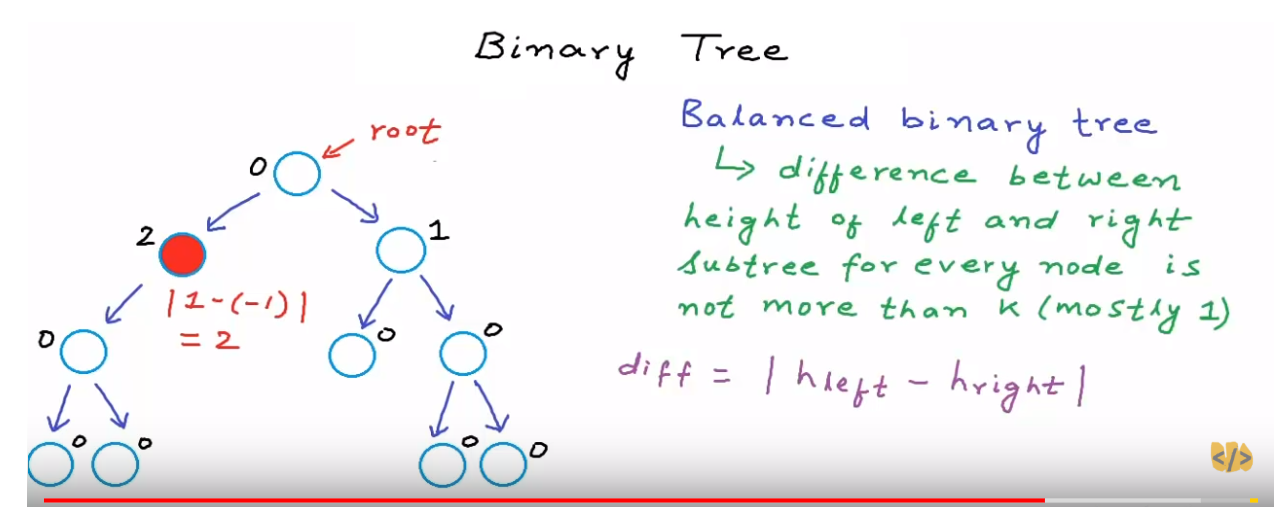 Binary Tree
root
0
2
1
|1-(-1)|
= 2
0
0
0
0
0
0
0
Balanced binary tree
↳ difference between
height of left and right
subtree for every node is
not more than k (mostly 1)
diff = | hleft - hright |
</>